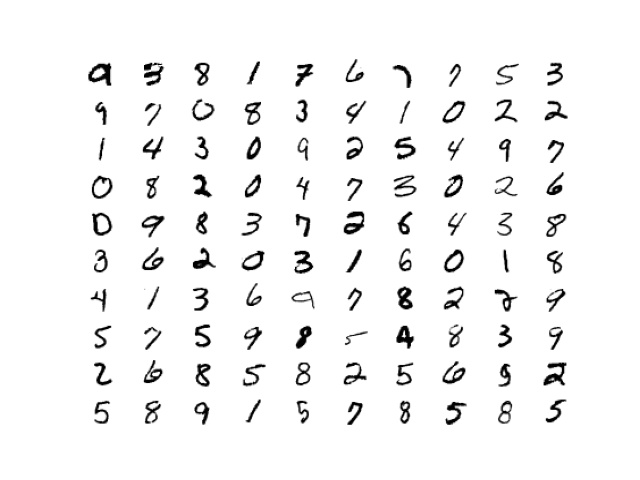 9 3 8 1 7 6 7 7 5 3
9 7 0 8 3 4 1 0 2 2
1 4 3 0 9 2 5 4 9 7
0 8 2 0 4 7 3 0 2 6
0 9 8 3 7 2 6 4 3 8
3 6 2 0 3 1 6 0 1 8
4 1 3 6 9 7 8 2 2 9
5 7 5 9 8 5 4 8 3 9
2 6 8 5 8 2 5 6 9 2
5 8 9 1 5 7 8 5 8 5